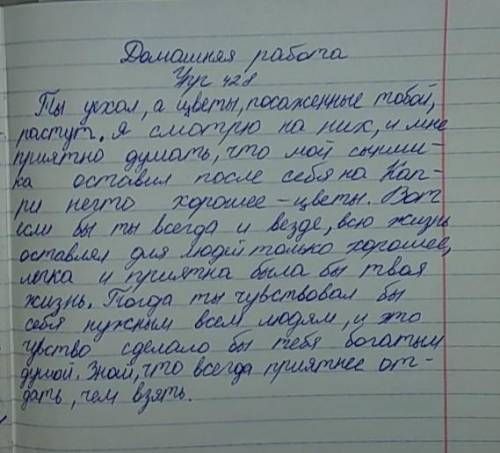 Домашняя работа
Упр 428
Ты уехал, а цветы, посаженные тобой,
растут. Я смотрю на них, и мне
приятно думать, что мой сыниш-
ка оставил после себя на Кап-
ри нечто хорошее – цветы. Вот
если бы ты всегда и везде, всю жизнь
оставлял для людей только хорошее,
легка и приятна была бы твоя
жизнь. Тогда ты чувствовал бы
себя нужным всем людям, и это
чувство сделало бы тебя богатым
душой. Знай, что всегда приятнее от-
дать, чем взять.